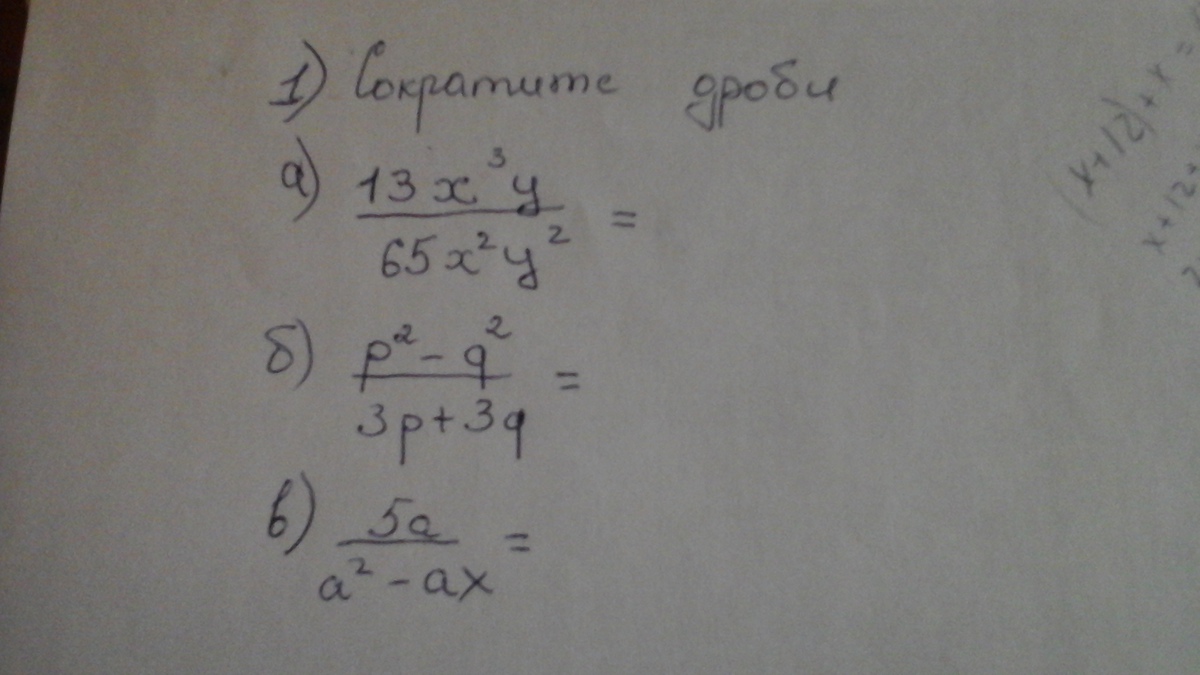 1) Сократите дроби
а) 13x³y / 65x²y² =
б) p² - q² / 3p + 3q =
в) 5a / a² - ax =
(x+12)+x=
x+12+
2